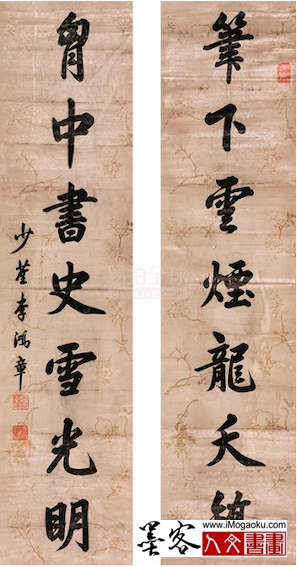 筆下雲煙龍夭
胷中書史雪光明
少荃李鴻章
www.iMogaoku.com
墨客
人文書畫